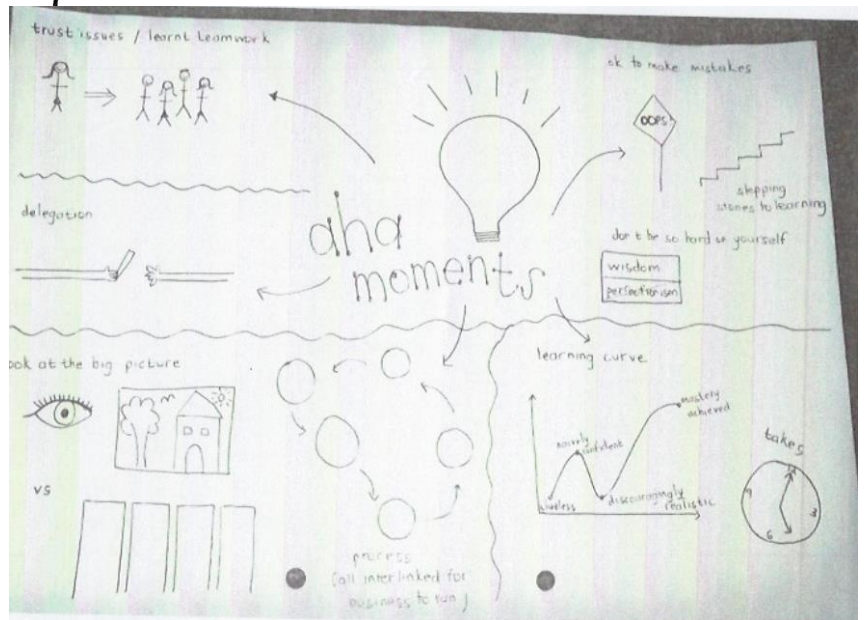 trust issues / learnt teamwork
ok to make mistakes
OOPS!
stepping
stones to learning
delegation
aha
moments
don't be so hard on yourself
wisdom
perfectionism
ook at the big picture
vs
process
(all interlinked for
business to run)
learning curve
mastery
achieved
naively
confident
clueless
discouragingly
realistic
takes
12
3
6
9